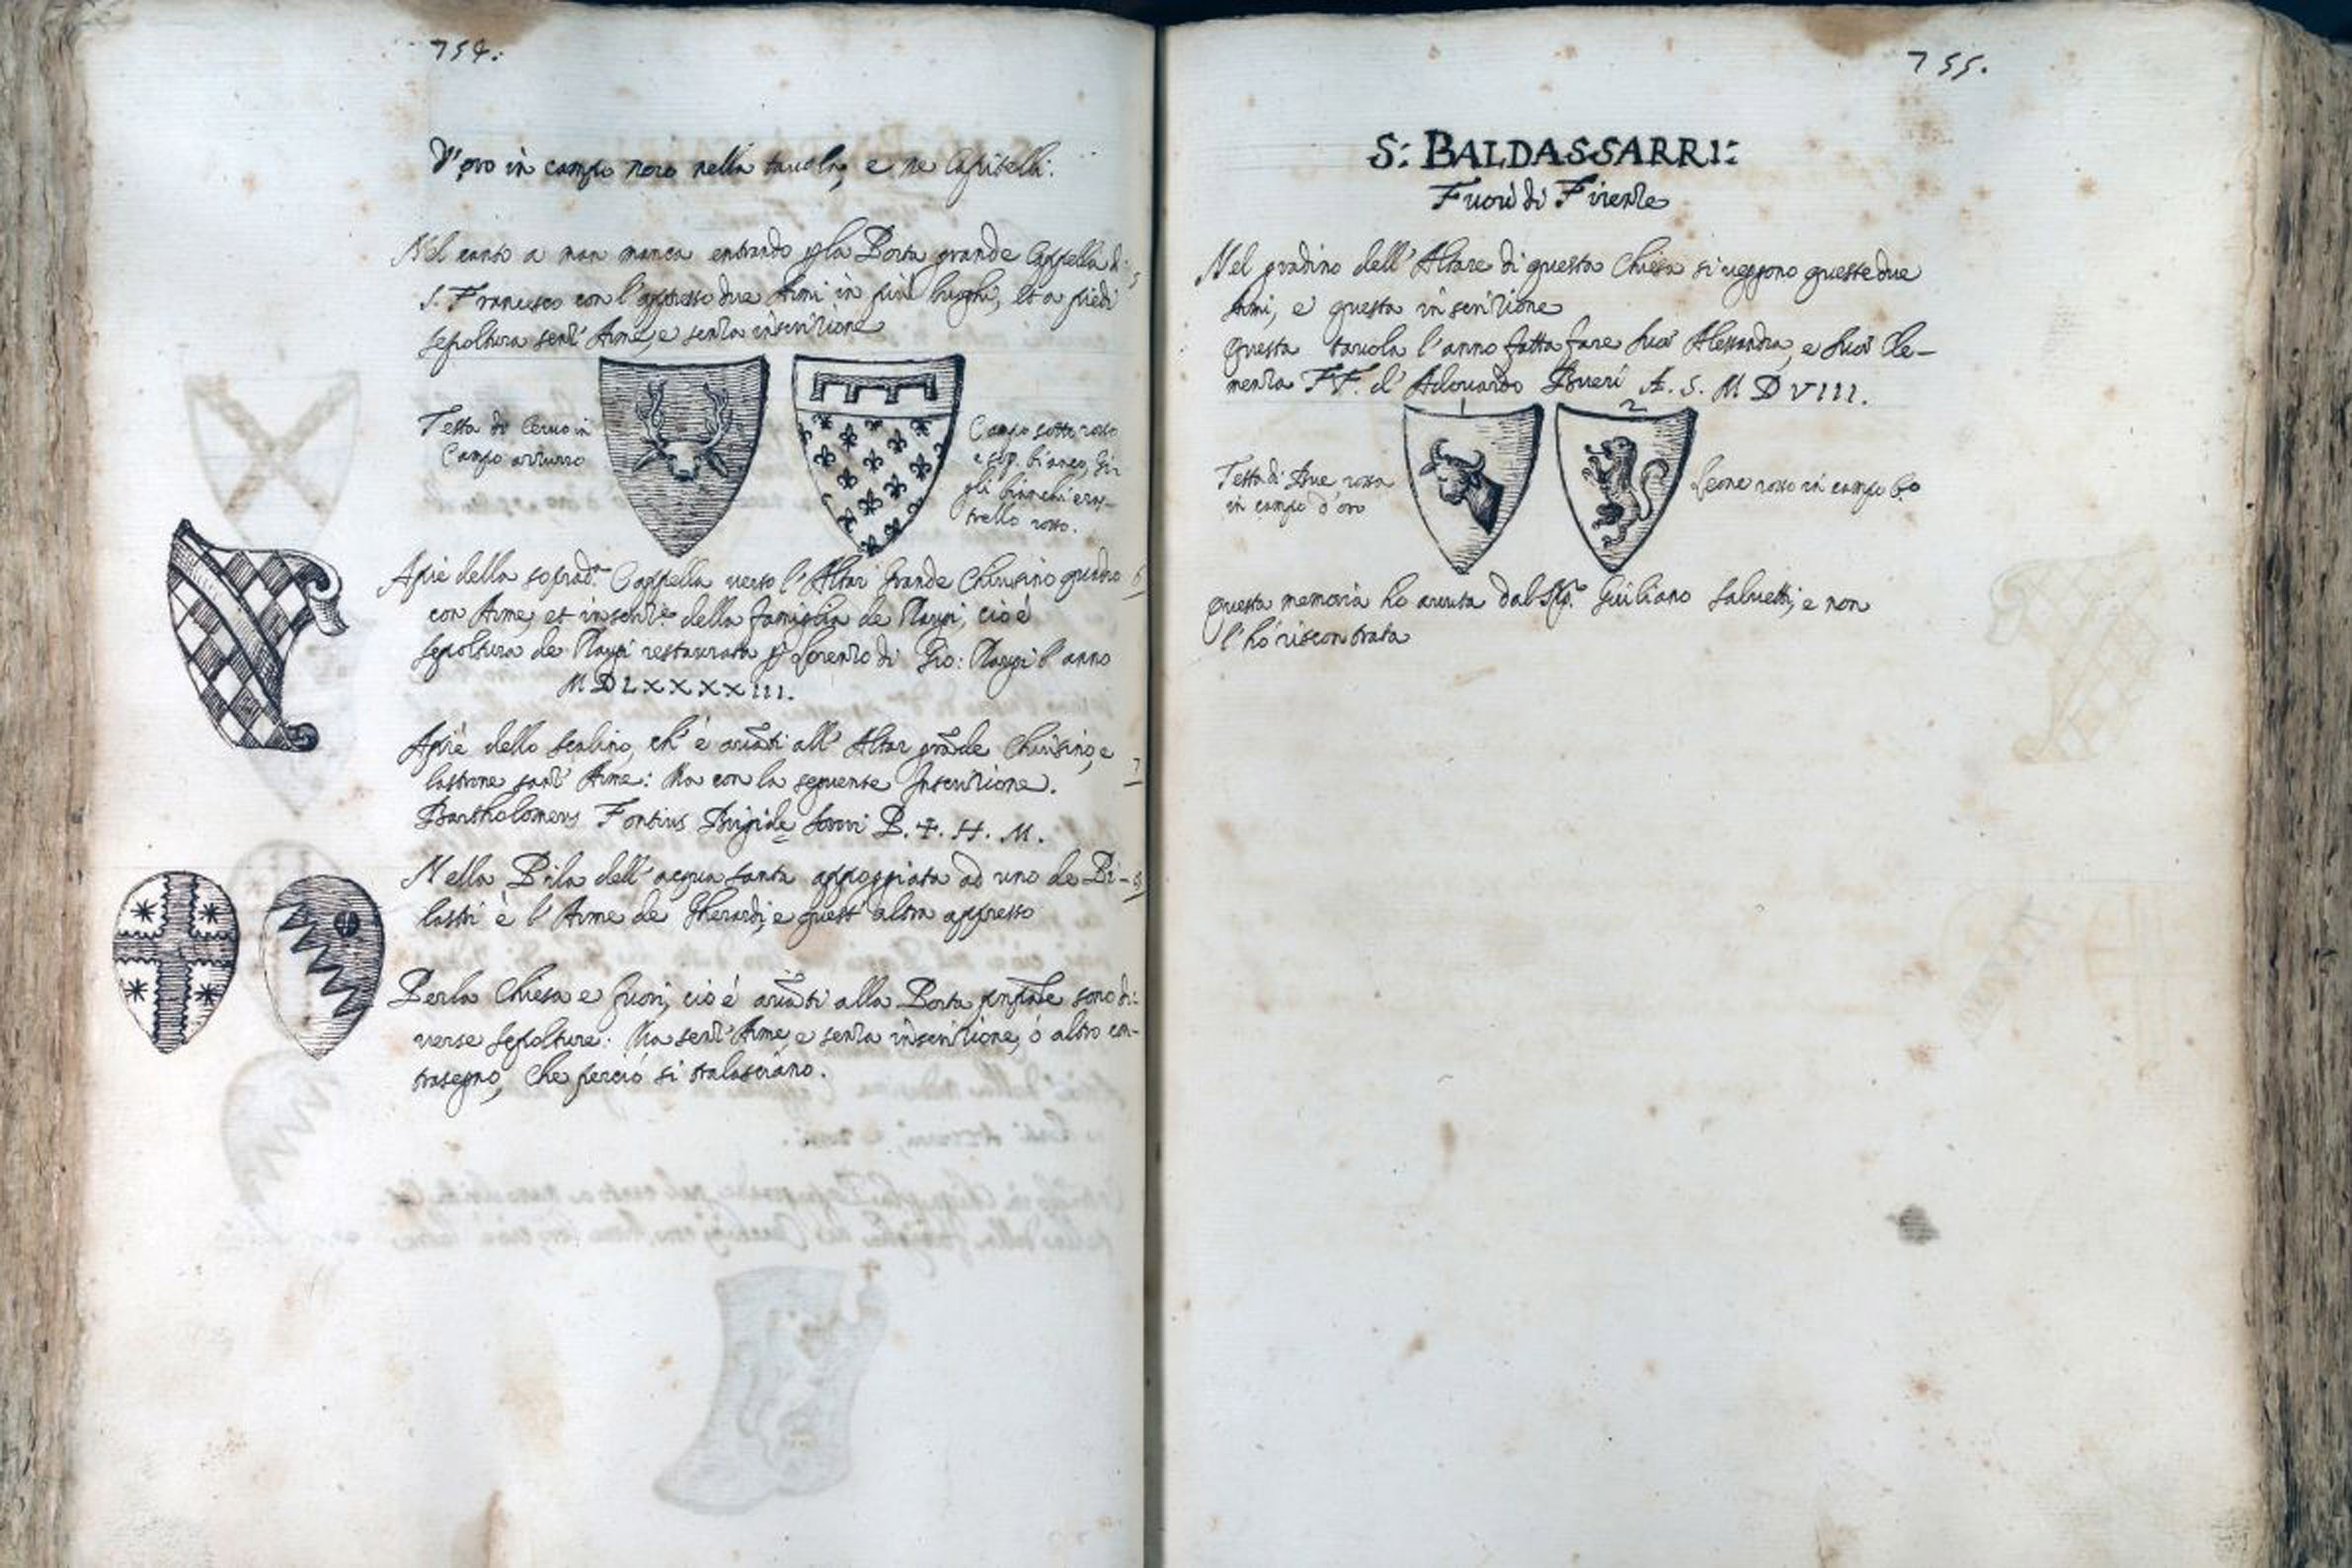 754.
D'oro in campo nero nella tavola, e ne Capitelli.
Nel canto a man manca entrando p la Porta grande Cappella di
S. Francesco con l'appresso due Armi in più luoghi, et a piedi
sepoltura senz' Arme, e senza inscrizione
Testa di Cervo in
Campo azzurro
Campo sotto rosso
e sop. bianco, Gi-
gli bianchi e ras-
trello rosso.
Apie della soprad.ᵃ Cappella verso l'Altar grande Chiusino quadro 6
con Arme, et inscriz.ᵉ della famiglia de cioè
sepoltura de restaurata p Lorenzo di Gio: l'anno
MDLXXXXIII.
Apiè dello scalino, ch' è avāti all' Altar grāde Chiusino, e 7
lastrone senz' Arme: Ma con la seguente Inscrizione.
Bartholomeus Fontius Brigide sorori P. H. M.
Nella Pila dell' acqua santa appoggiata ad uno de Pi- 8
lastri è l'Arme de Gherardi, e quest' altra appresso
Per la Chiesa e fuori, cioè avāti alla Porta sono di-
verse sepolture. Ma senz' Arme, e senza inscrizione, ò altro con-
trasegno, che perciò si tralasciano.
755.
S: BALDASSARRI:
Fuori di Firenze
Nel gradino dell' Altare di questa Chiesa si veggono queste due
Armi, e questa inscrizione
Questa tavola l'anno fatta fare Suor Alessandra, e Suor Cle-
menza FF. d' Adouardo Bueri A. S. MDVIII.
1 2
Testa di Bue rossa
in campo d'oro
Leone rosso in campo b.º
Questa memoria ho avuta dal Sig.ʳ Giuliano Salvetti, e non
l'hò riscontrata